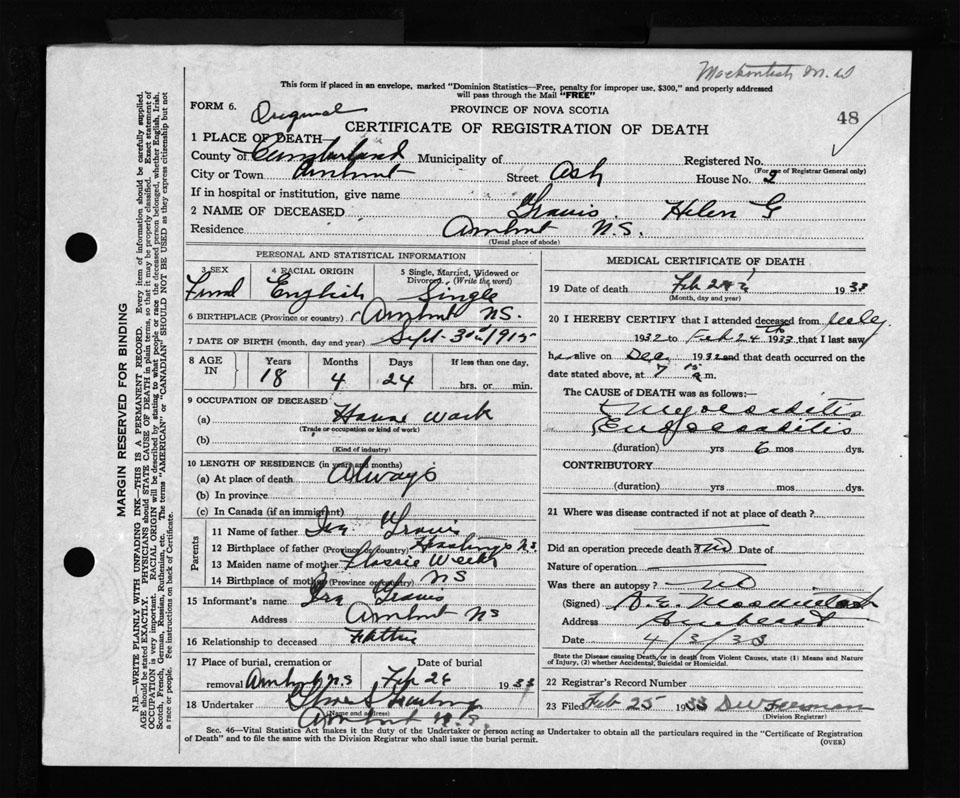 Mackintosh M. D
This form if placed in an envelope, marked "Dominion Statistics—Free, penalty for improper use, $300," and properly addressed
will pass through the Mail "FREE"
FORM 6. Original PROVINCE OF NOVA SCOTIA
48
CERTIFICATE OF REGISTRATION OF DEATH
1 PLACE OF DEATH
County of Cumberland Municipality of Registered No.
(For use of Registrar General only)
City or Town Amherst Street Ash House No. 2
If in hospital or institution, give name
2 NAME OF DECEASED Travis. Helen G
Residence Amherst N.S.
(Usual place of abode)
PERSONAL AND STATISTICAL INFORMATION
3 SEX 4 RACIAL ORIGIN 5 Single, Married, Widowed or Divorced. (Write the word)
Femal English Single
6 BIRTHPLACE (Province or country) Amherst N.S.
7 DATE OF BIRTH (month, day and year) Sept. 30th 1915
8 AGE IN Years Months Days If less than one day,
18 4 24 hrs. or min.
9 OCCUPATION OF DECEASED
(a) House work
(Trade or occupation or kind of work)
(b)
(Kind of industry)
10 LENGTH OF RESIDENCE (in years and months)
(a) At place of death Always
(b) In province
(c) In Canada (if an immigrant)
Parents
11 Name of father Ira Travis
12 Birthplace of father (Province or country) Hastings NS
13 Maiden name of mother Flossie Weeks
14 Birthplace of mother (Province or country) NS
15 Informant's name Ira Travis
Address Amherst NS
16 Relationship to deceased Father
17 Place of burial, cremation or Date of burial
removal Amherst N S Feb 26 1933
18 Undertaker
(Name and address)
Amherst N.S.
MEDICAL CERTIFICATE OF DEATH
19 Date of death Feb 24 1933
(Month, day and year)
20 I HEREBY CERTIFY that I attended deceased from July
1932 to Feb 24th 1933, that I last saw
her alive on Dec 1932 and that death occurred on the
date stated above, at 7 m.
The CAUSE OF DEATH was as follows:—
Myocarditis
Endocarditis
(duration) yrs 6 mos dys.
CONTRIBUTORY
(duration) yrs mos dys.
21 Where was disease contracted if not at place of death?
Did an operation precede death? no Date of
Nature of operation
Was there an autopsy? no
(Signed) A. E. Mackintosh
Address Amherst
Date 4/3/33
State the Disease causing Death, or in death from Violent Causes, state (1) Means and Nature
of Injury, (2) whether Accidental, Suicidal or Homicidal.
22 Registrar's Record Number
23 Filed Feb 25 1933
(Division Registrar)
Sec. 46—Vital Statistics Act makes it the duty of the Undertaker or person acting as Undertaker to obtain all the particulars required in the "Certificate of Registration
of Death" and to file the same with the Division Registrar who shall issue the burial permit.
(OVER)
MARGIN RESERVED FOR BINDING
N.B.—WRITE PLAINLY WITH UNFADING INK—THIS IS A PERMANENT RECORD. Every item of information should be carefully supplied.
AGE should be stated EXACTLY. PHYSICIANS should STATE CAUSE OF DEATH in plain terms, so that it may be properly classified. Exact statement of
OCCUPATION is very important. RACIAL ORIGIN will be described by stating to what people or race the deceased person belonged, whether English, Irish,
Scotch, French, German, Russian, Ruthenian, etc. The terms "AMERICAN" or "CANADIAN" SHOULD NOT BE USED as they express citizenship but not
a race or people. Fee instructions on back of Certificate.